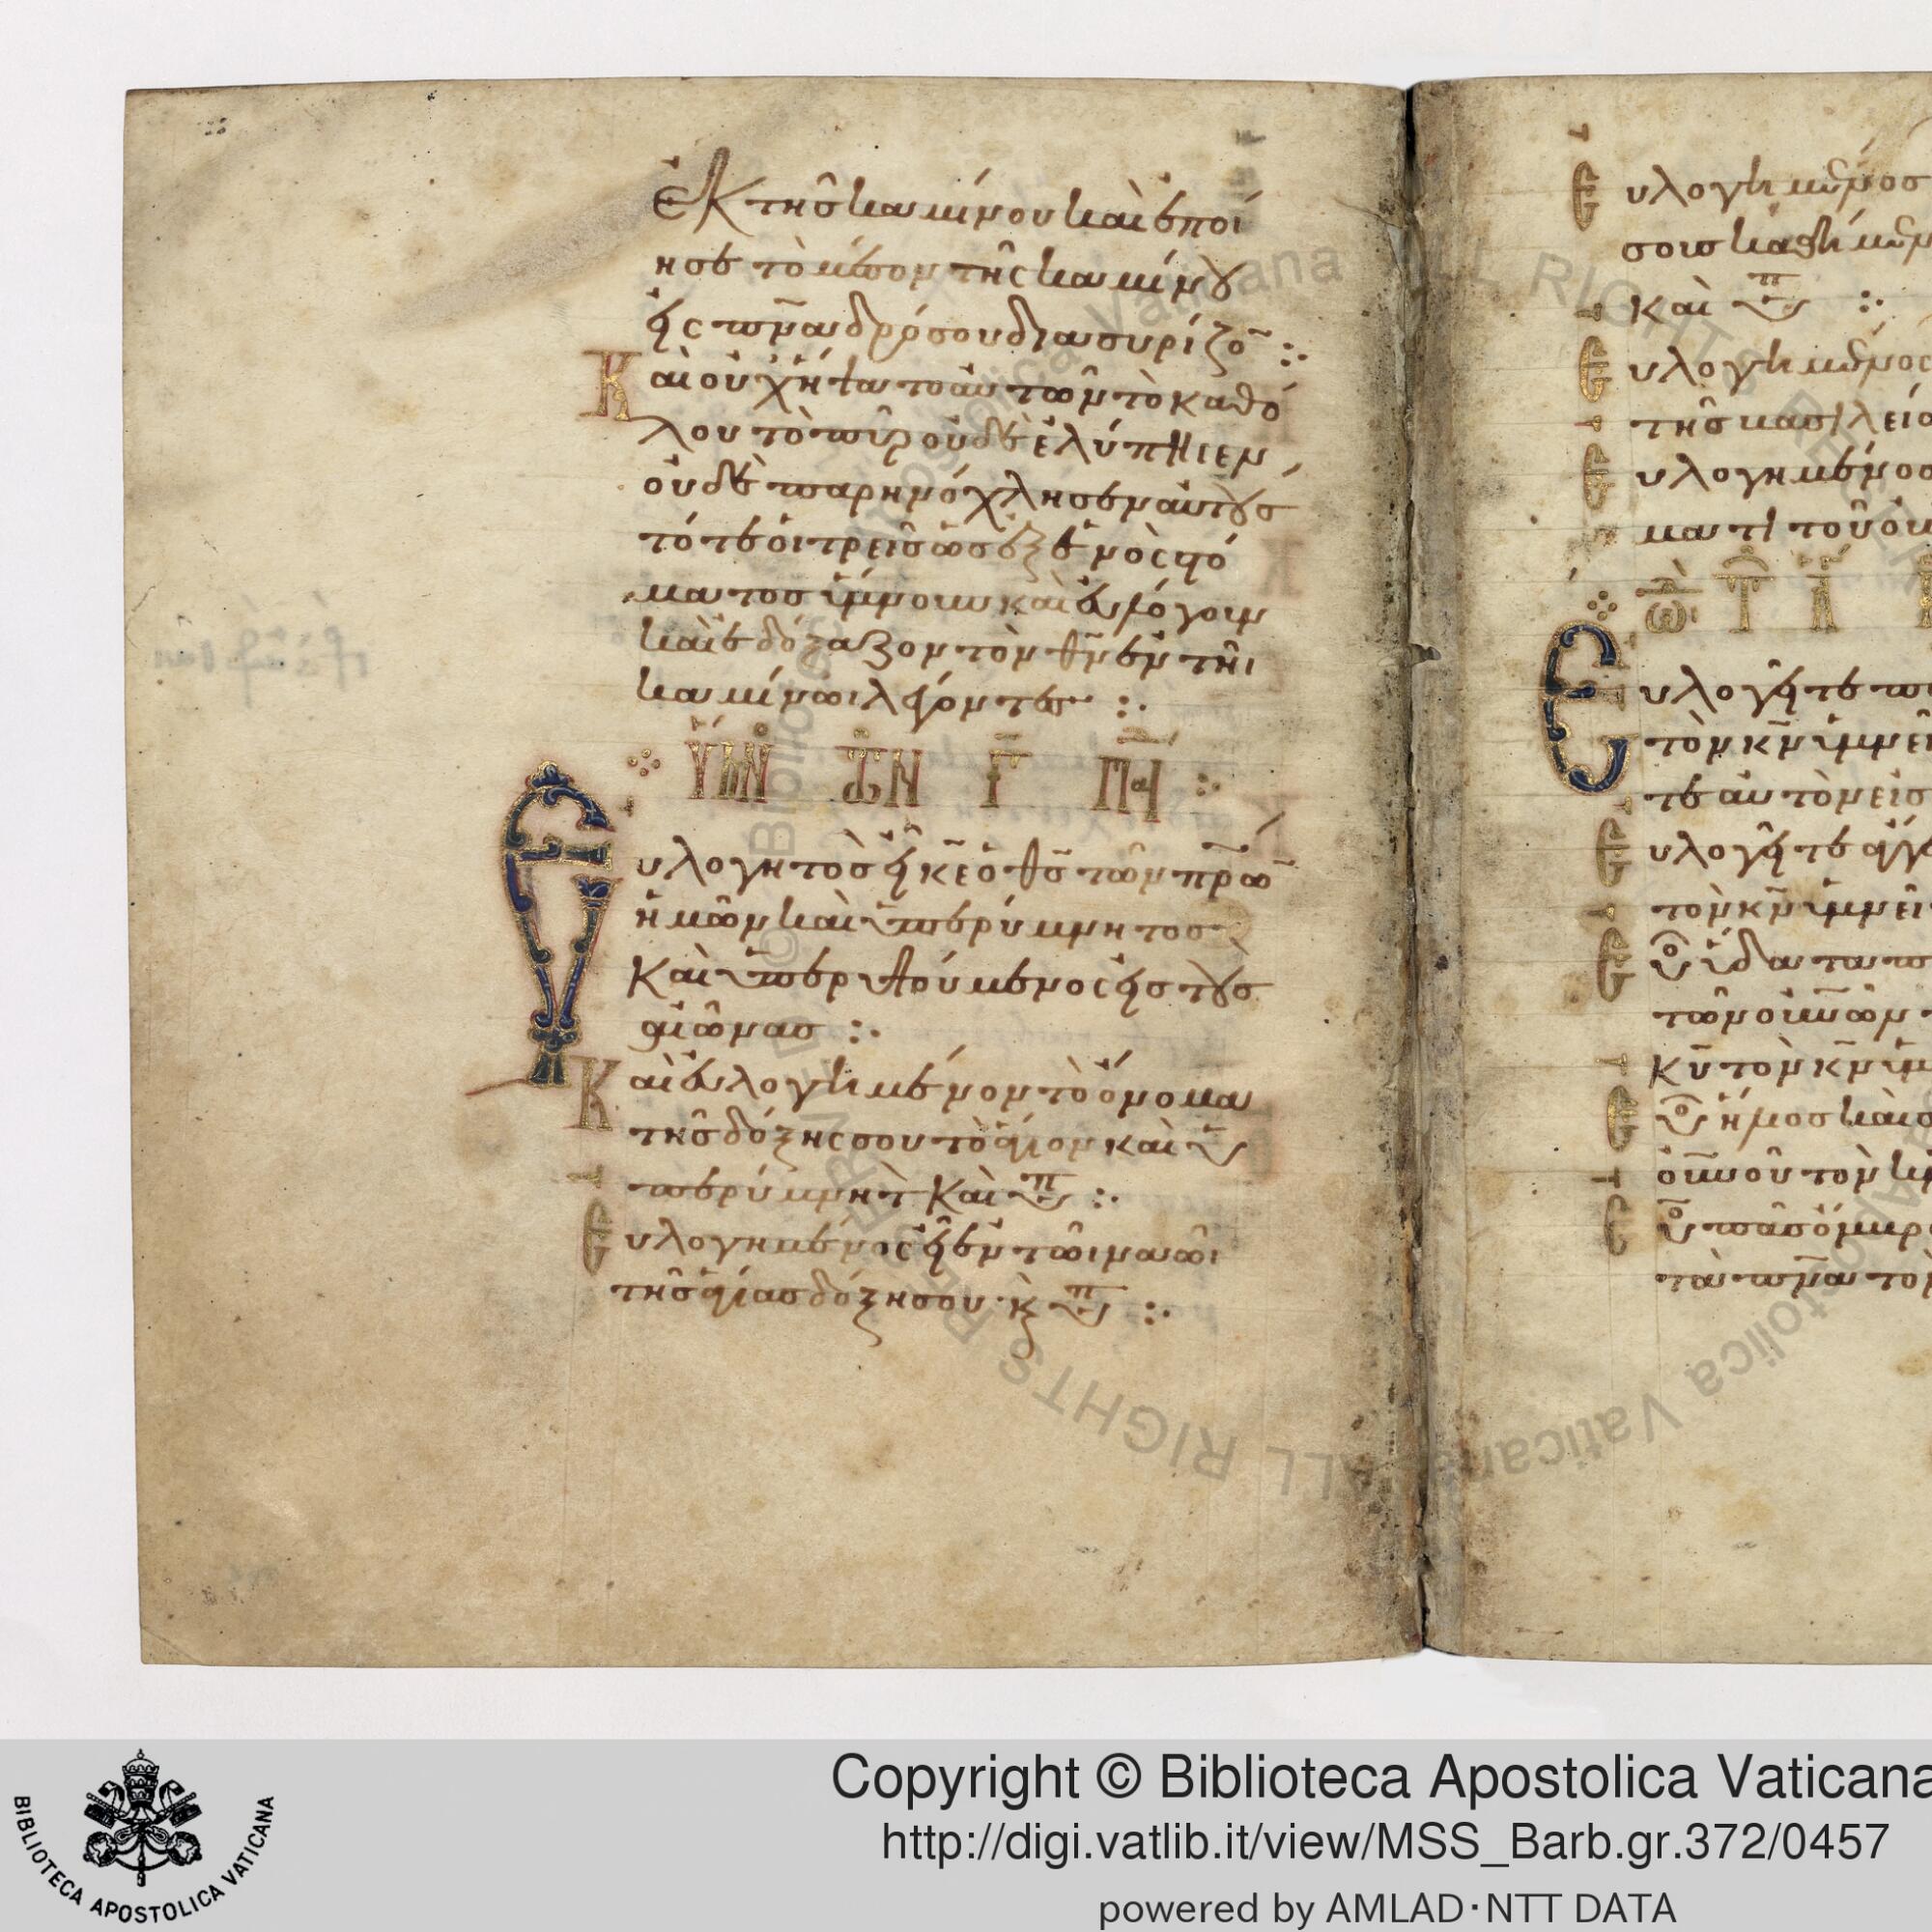 ἐκ τῆς καμίνου καὶ ἐποί
ησε τὸ μέσον τῆς καμίνου
ὡς πν̅α δρόσου διασυρίζο̅ :·
Καὶ οὐχ ἥψατο αὐτῶν τὸ καθό
λου τὸ πῦρ οὐδὲ ἐλύπησεν,
οὐδὲ παρηνόχλησεν αὐτοὺς
τότε οἱ τρεῖς ὡς ἐξ ἑνὸς στό
ματος ὕμνουν καὶ εὐλόγουν
καὶ ἐδόξαζον τὸν θν̅ ἐν τῆι
καμίνωι λέγοντες :·
ὝΜΝ ΤῶΝ Γ̅ ΠΑΙ :·
Εὐλογητὸς εἶ κε̅ ὁ θς̅ τῶν πρ̅ω̅
ἡμῶν καὶ ὑπερύμνητος
καὶ ὑπερυψούμενος εἰς τοὺς
αἰῶνας :·
Καὶ εὐλογημένον τὸ ὄνομα
τῆς δόξης σου τὸ ἅγιον καὶ ὑ
περύμνητ καὶ υπ :·
Εὐλογημένος εἶ ἐν τῶι ναῶι
τῆς ἁγίας δόξης σου· κ̀ υπ :·
Εὐλογημένος
καὶ υπ :·
Εὐλογημένος
τῆς βασιλεία
Εὐλογημένος
ματι τοῦ οὐ
Εὐλογεῖτε
τὸν κν̅ ὑμνεῖ
τε αὐτὸν εἰς
Εὐλογεῖτε ἄγγε
τὸν κν̅ ὑμνεῖ
Εὐ ὕδατα
τῶν οὐν̅ῶν
κυ̅ τὸν κν̅ ὑμ
Εὐ ἥλιος καὶ σ
οὐν̅οῦ τὸν
Εὐ πᾶς ὄμβρ
τὰ πν̅α τὸν
Copyright © Biblioteca Apostolica Vaticana
http://digi.vatlib.it/view/MSS_Barb.gr.372/0457
powered by AMLAD·NTT DATA
BIBLIOTECA APOSTOLICA VATICANA